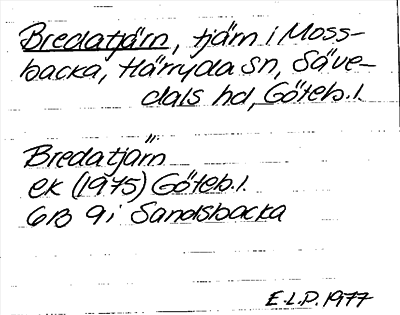 Bredatjärn, tjärn i Moss-
backa, Härryda sn, Säve-
dals hd, Göteb.l.
Bredatjärn
ek (1975) Göteb.l.
6B 9i Sandsbacka
E.L.P. 1977